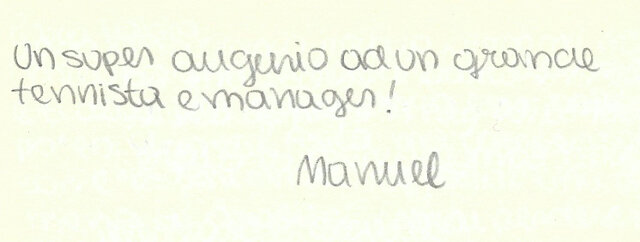 Un super augurio ad un grande
tennista e manager!
Manuel